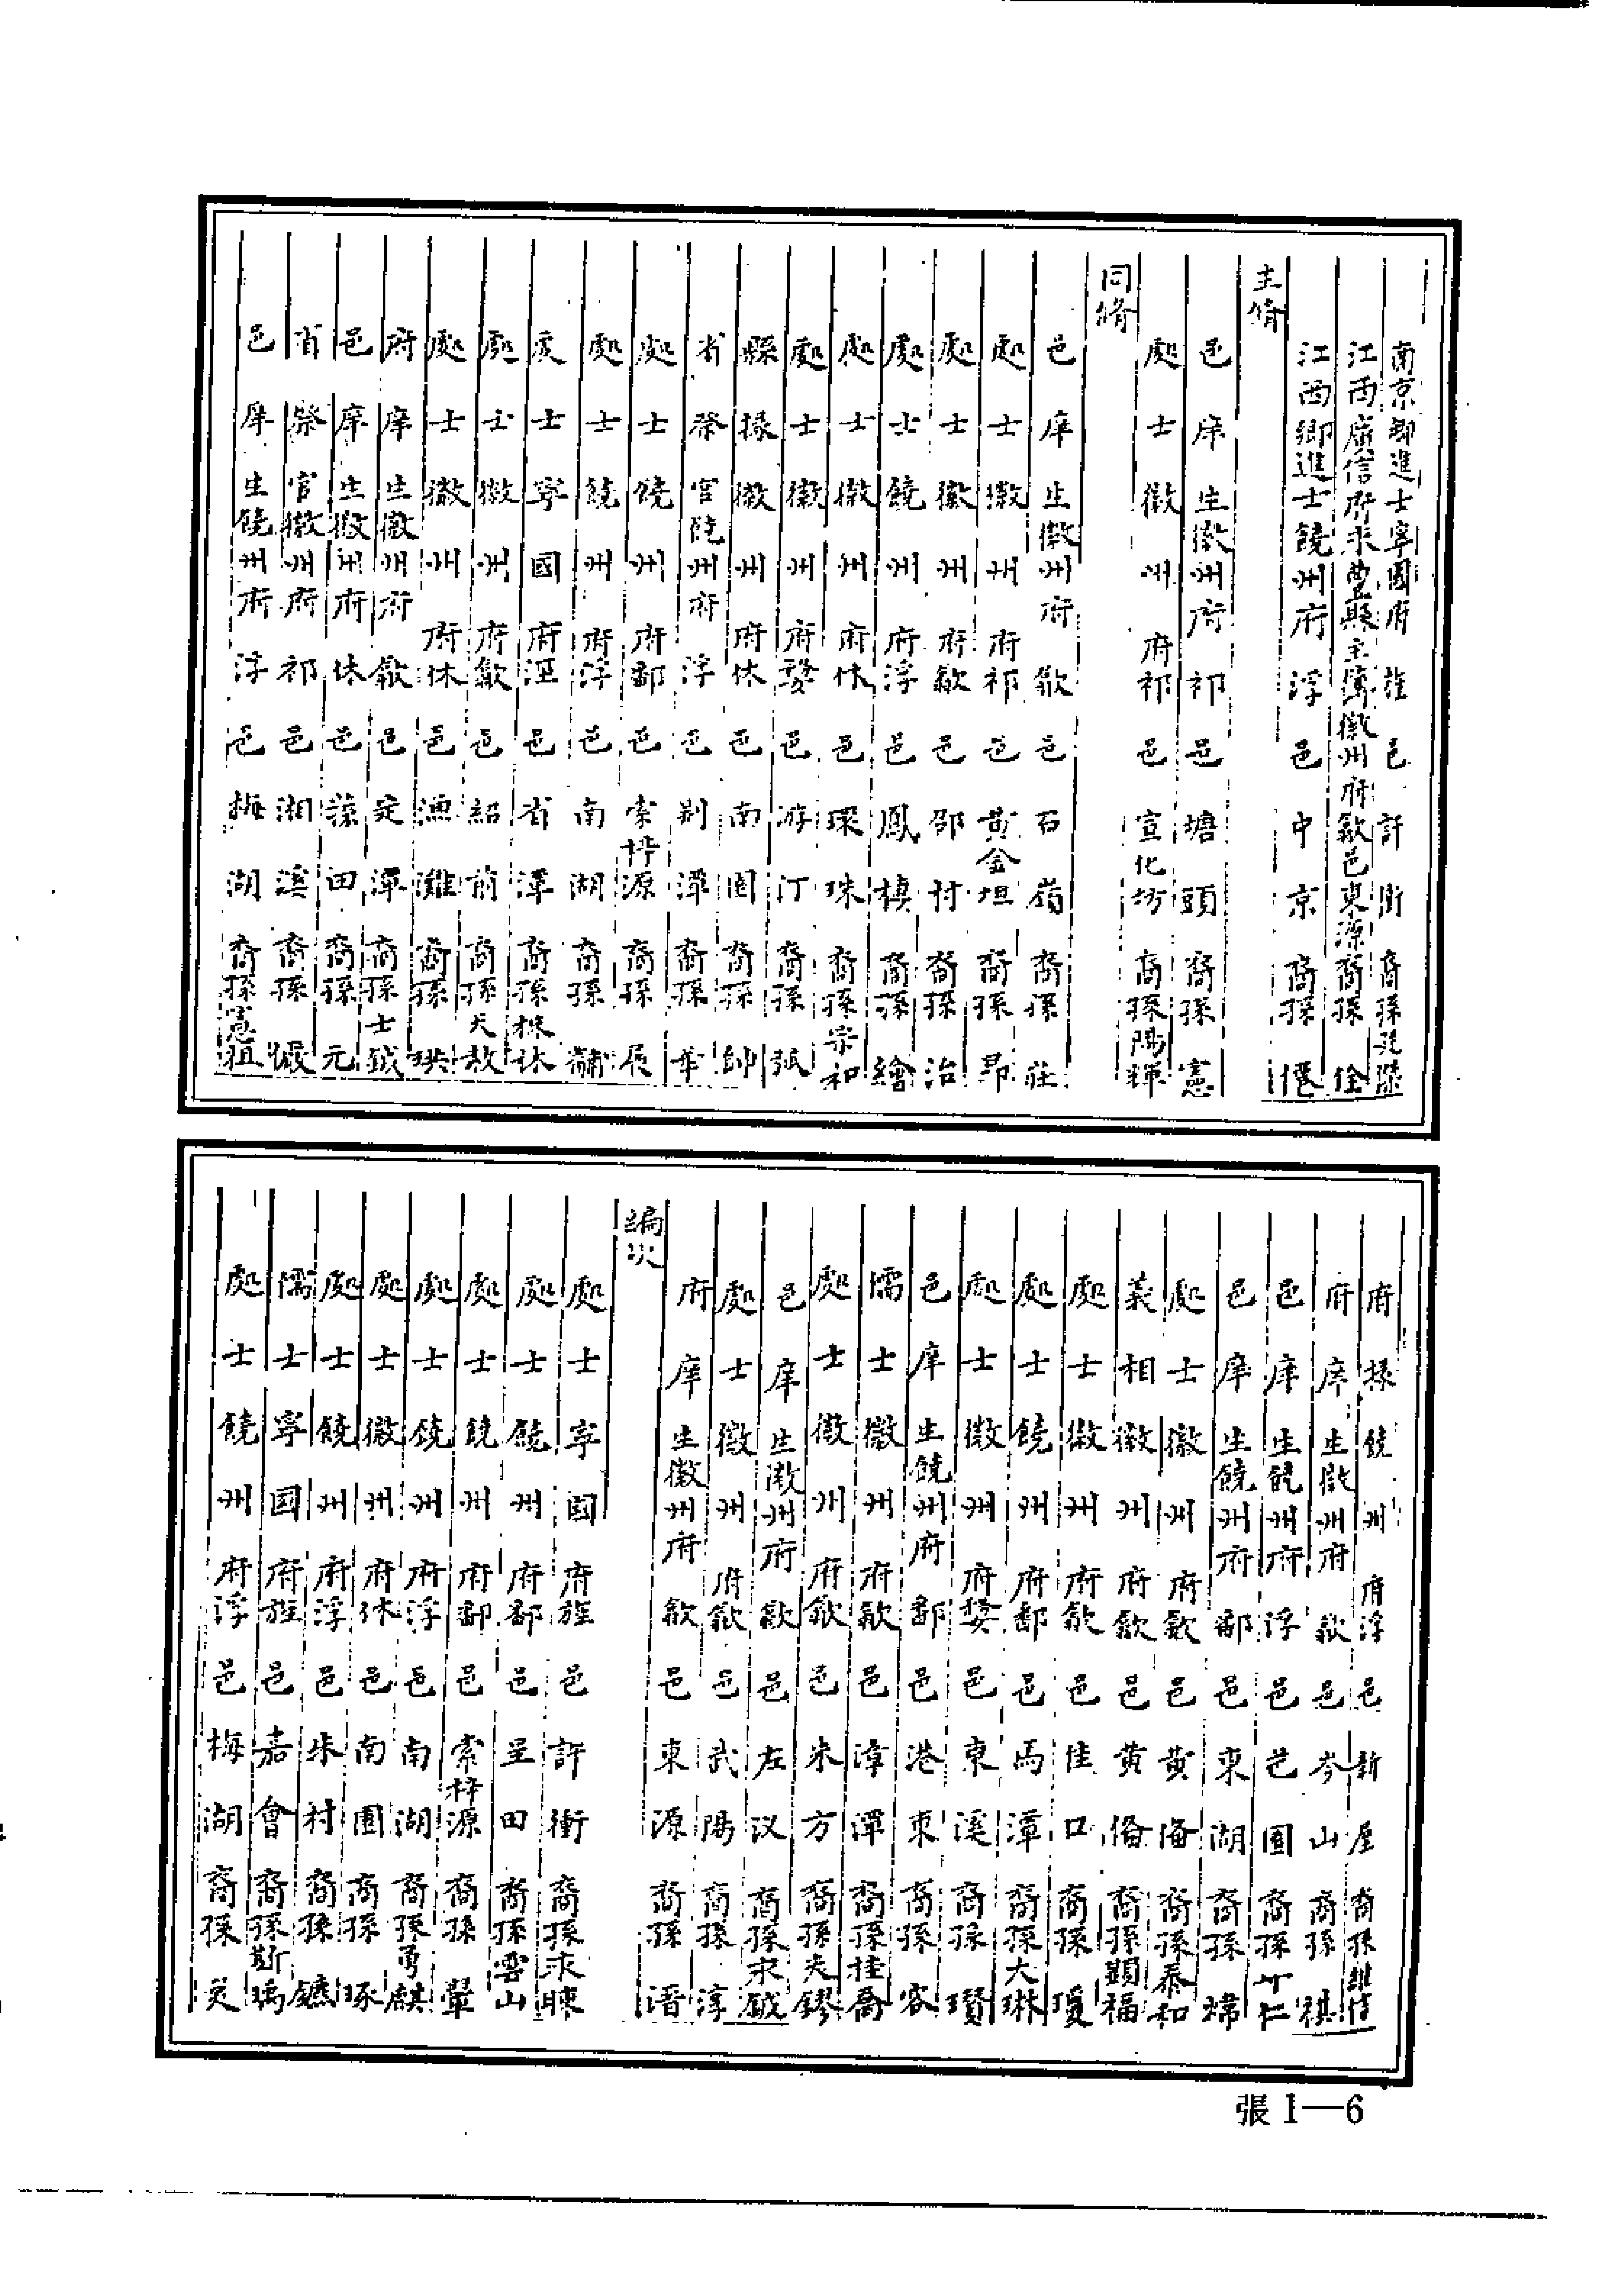 南京鄉進士寧國府旌邑許街裔孫
江西廣信府永豐縣主簿徽州府歙邑東源裔孫佺
江西鄉進士饒州府浮邑中京裔孫僊
主脩
邑庠生徽州府祁邑塘頭裔孫憲
處士徽州府祁邑宣化坊裔孫陽輝
同脩
邑庠生徽州府歙邑石嶺裔孫莊
處士徽州府祁邑黃金坦裔孫昂
處士徽州府歙邑邵村裔孫治
處士饒州府浮邑鳳棲裔孫繪
處士徽州府休邑環珠裔孫宗和
處士徽州府婺邑游汀裔孫弧
縣掾徽州府休邑南園裔孫帥
省祭官饒州府浮邑荆潭裔孫華
處士饒州府鄱邑索坪源裔孫辰
處士饒州府浮邑南湖裔孫黼
處士寧國府涇邑省潭裔孫休
處士徽州府歙邑紹前裔孫天敖
處士徽州府休邑漁灘裔孫珙
府庠生徽州府歙邑定潭裔孫士鉞
邑庠生徽州府休邑蓀田裔孫元
省祭官徽州府祁邑湘溪裔孫
邑庠生饒州府浮邑梅湖裔孫憲祖
府掾饒州府浮邑新屋裔孫維信
府庠生徽州府歙邑岑山裔孫祺
邑庠生饒州府浮邑芭園裔孫仁
邑庠生饒州府鄱邑東湖裔孫煒
處士徽州府歙邑黃備裔孫泰和
義相徽州府歙邑黃備裔孫顯福
處士徽州府歙邑佳口裔孫瓊
處士饒州府鄱邑馬潭裔孫大琳
處士徽州府婺邑東溪裔孫瓚
邑庠生饒州府鄱邑港東裔孫容
儒士徽州府歙邑漳潭裔孫桂喬
處士徽州府歙邑朱方裔孫天鏐
邑庠生徽州府歙邑左汊裔孫永鉞
處士徽州府歙邑武陽裔孫淳
府庠生徽州府歙邑東源裔孫
編次
處士寧國府旌邑許衝裔孫永暕
處士饒州府鄱邑呈田裔孫雲山
處士饒州府鄱邑索梓源裔孫翬
處士饒州府浮邑南湖裔孫勇麒
處士徽州府休邑南園裔孫琢
處士饒州府浮邑朱村裔孫鑣
儒士寧國府旌邑嘉會裔孫斯瑀
處士饒州府浮邑梅湖裔孫
張1—6